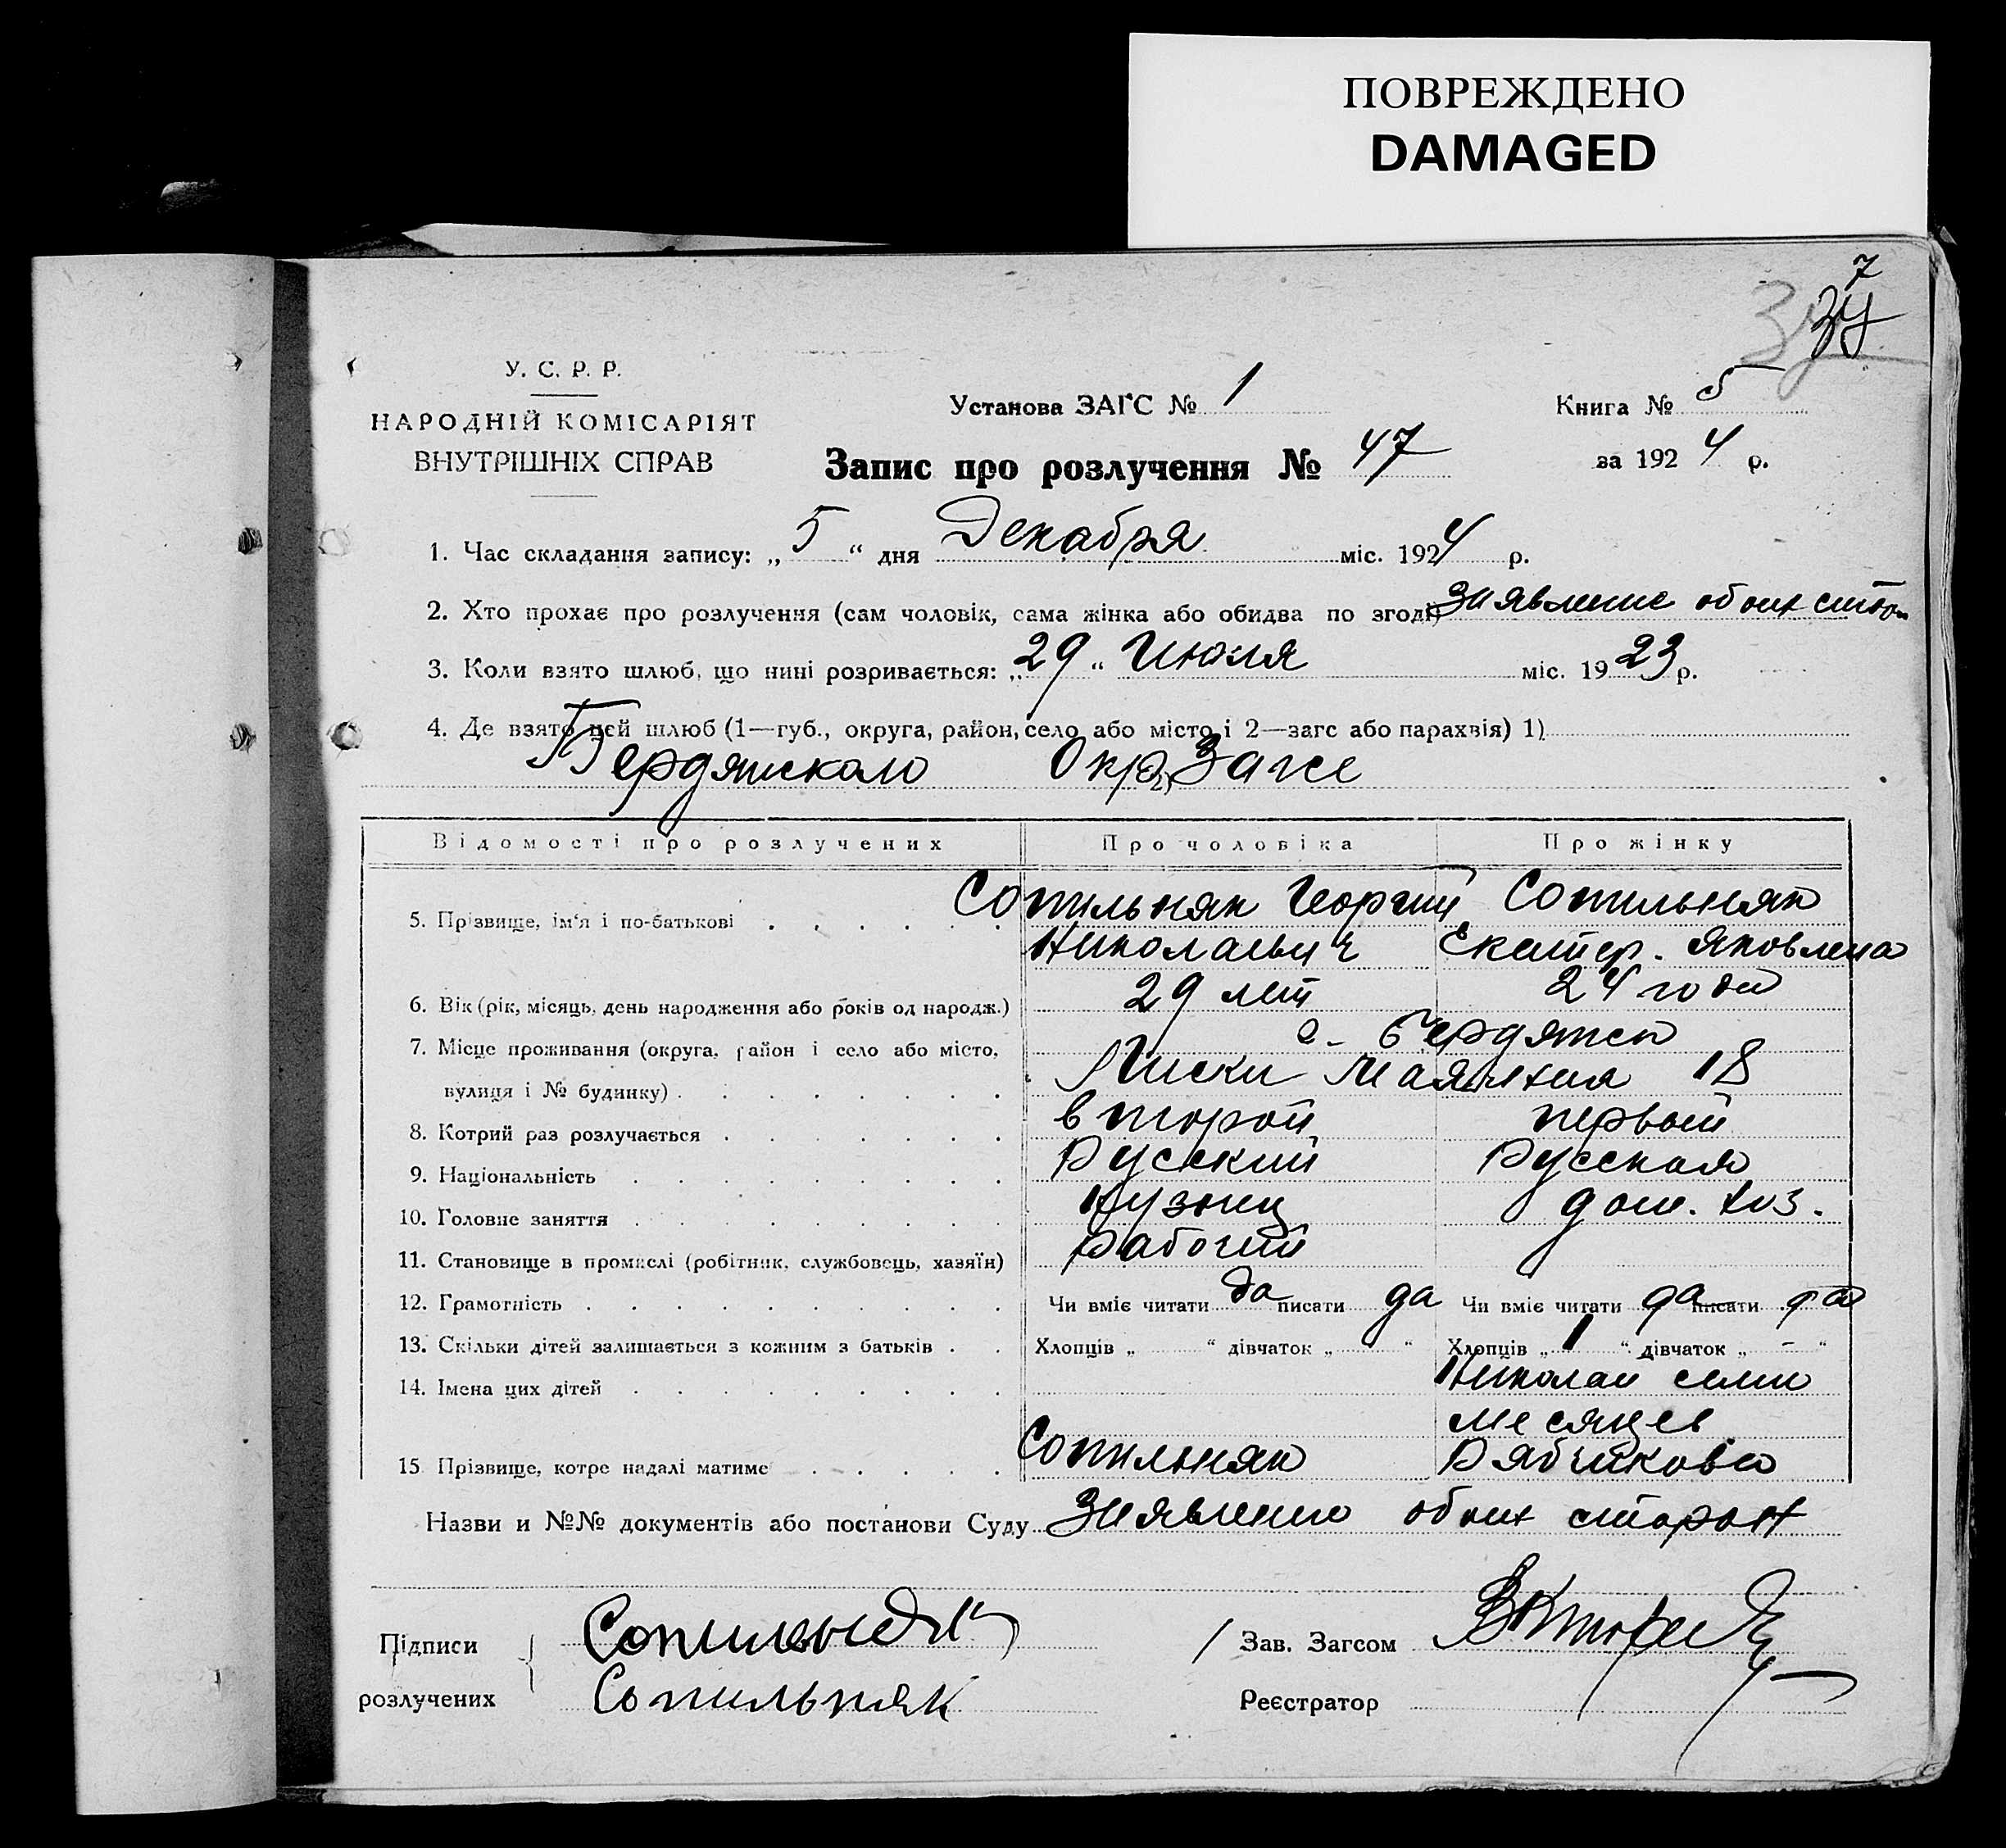 ПОВРЕЖДЕНО
DAMAGED
7
34
У. С. Р. Р.
НАРОДНІЙ КОМІСАРІЯТ
ВНУТРІШНІХ СПРАВ
Установа ЗАГС № 1
Книга № 5
Запис про розлучення № 47
за 1924 р.
1. Час складання запису: „5“ дня Декабря міс. 1924 р.
2. Хто прохає про розлучення (сам чоловік, сама жінка або обидва по згоді) заявление обоих сторон
3. Коли взято шлюб, що нині розривається: „29“ Июля міс. 1923 р.
4. Де взято цей шлюб (1—губ., округа, район, село або місто і 2—загс або парахвія) 1)
Бердянском Окр. 2) Загсе
Відомості про розлучених Про чоловіка Про жінку
5. Прізвище, ім'я і по-батькові Сопильняк Георгий Сопильняк
Николаевич Екатер. Яковлевна
6. Вік (рік, місяць, день народження або років од народж.) 29 лет 24 года
7. Місце проживання (округа, район і село або місто, г. Бердянск
вулиця і № будинку) Лиски Маячная 18
8. Котрий раз розлучається второй первый
9. Національність Русский Русская
10. Головне заняття кузнец дом. хоз.
11. Становище в промислі (робітник, службовець, хазяїн) Рабочий
12. Грамотність Чи вміє читати да писати да Чи вміє читати да писати да
13. Скільки дітей залишається з кожним з батьків Хлопців „ “ дівчаток „ “ Хлопців „ 1 “ дівчаток „ – “
14. Імена цих дітей Николай семи
месяцев
15. Прізвище, котре надалі матиме Сопильняк Рябчикова
Назви и №№ документів або постанови Суду Заявление обоих сторон
Підписи Сопильняк Зав. Загсом
розлучених Сопильняк Реєстратор